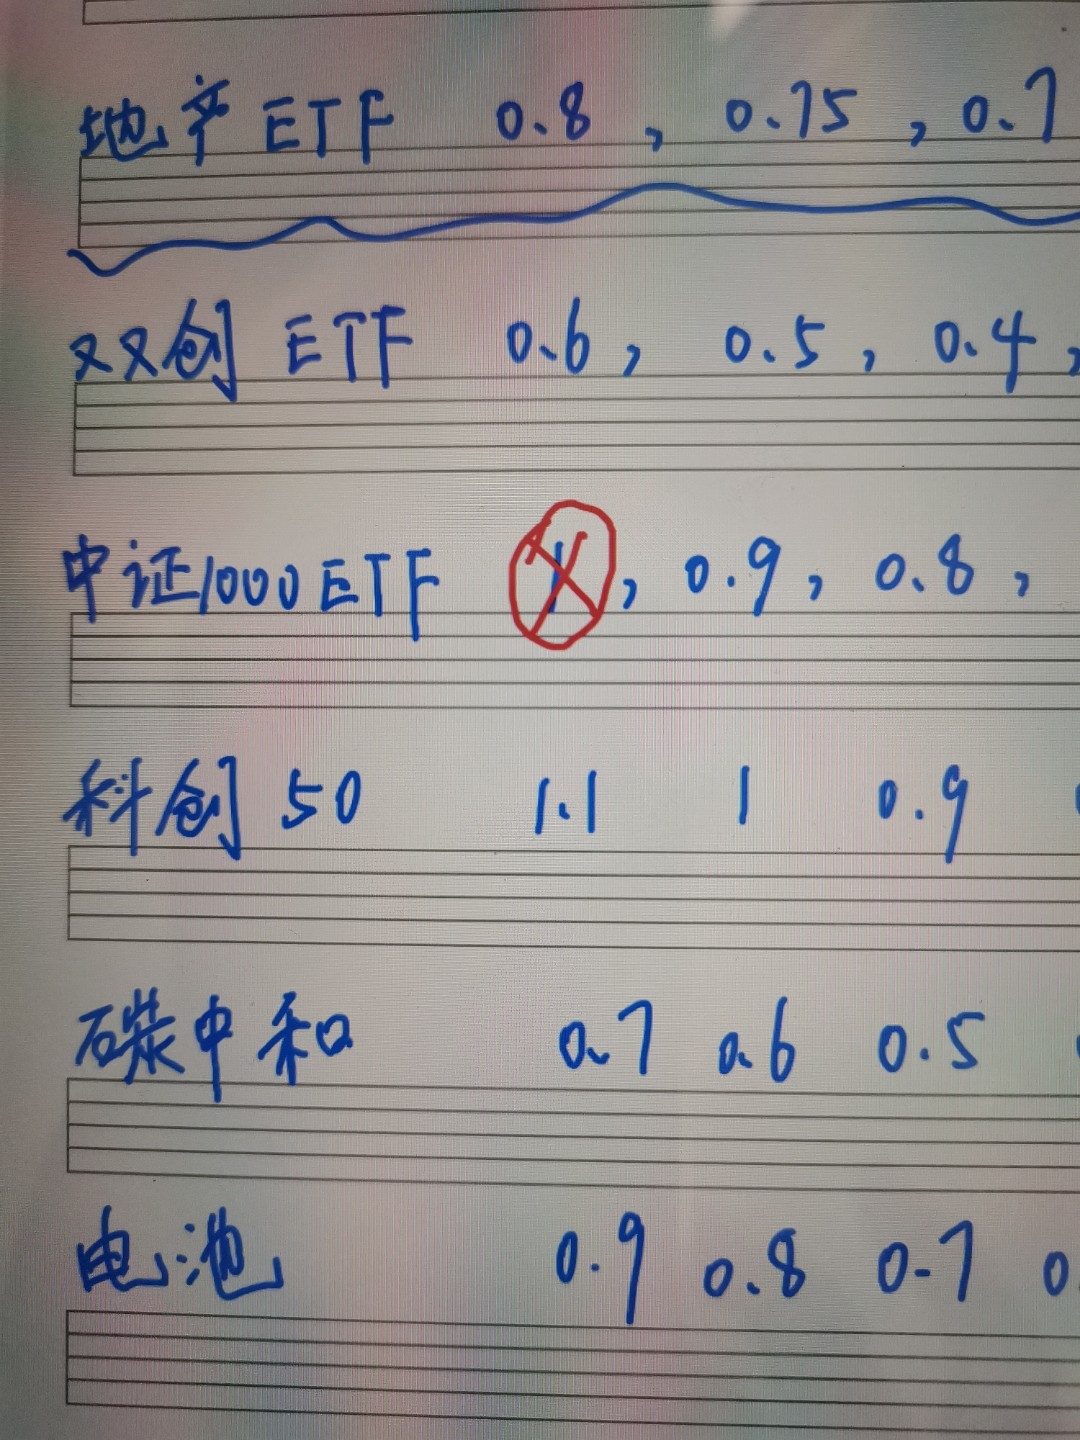 地产ETF 0.8 , 0.75 , 0.7
双创 ETF 0.6 , 0.5 , 0.4 ,
中证1000ETF 1 , 0.9 , 0.8 ,
科创 50 1.1 1 0.9
碳中和 0.7 0.6 0.5
电池 0.9 0.8 0.7 0.